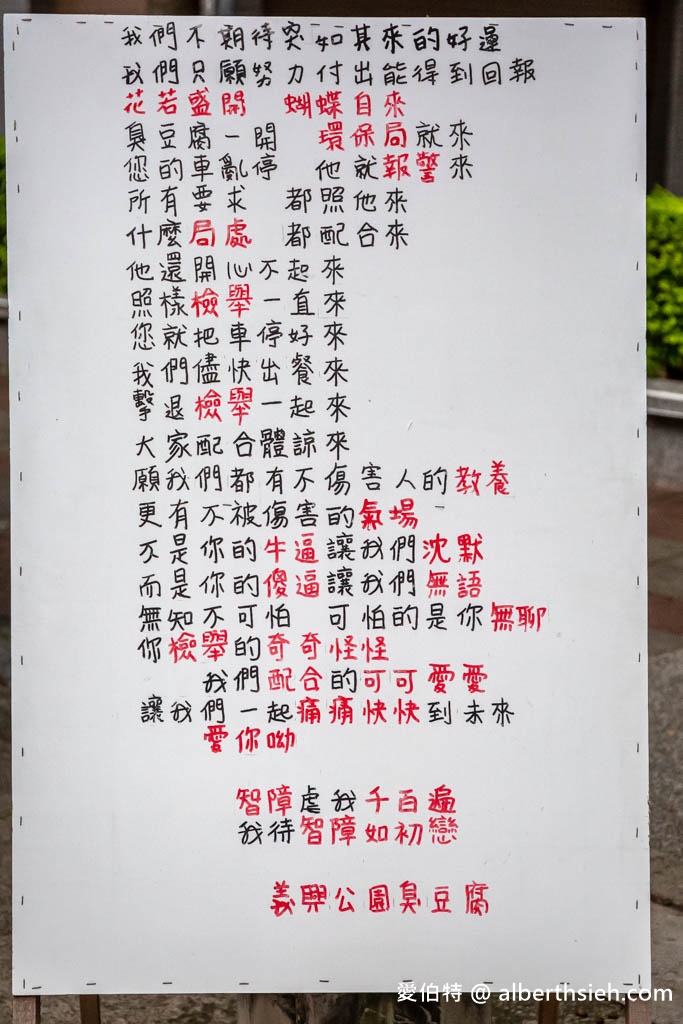 我們不期待突如其來的好運
我們只願努力付出能得到回報
花若盛開 蝴蝶自來
臭豆腐一開 環保局就來
您的車亂停 他就報警來
所有要求 都照他來
什麼局處 都配合來
他還開心不起來
照樣檢舉一直來
您就把車停好來
我們儘快出餐來
擊退檢舉一起來
大家配合體諒來
願我們都有不傷害人的教養
更有不被傷害的氣場
不是你的牛逼讓我們沈默
而是你的傻逼讓我們無語
無知不可怕 可怕的是你無聊
你檢舉的奇奇怪怪
我們配合的可可愛愛
讓我們一起痛痛快快到未來
愛你呦
智障虐我千百遍
我待智障如初戀
義興公園臭豆腐
愛伯特 @ alberthsieh.com